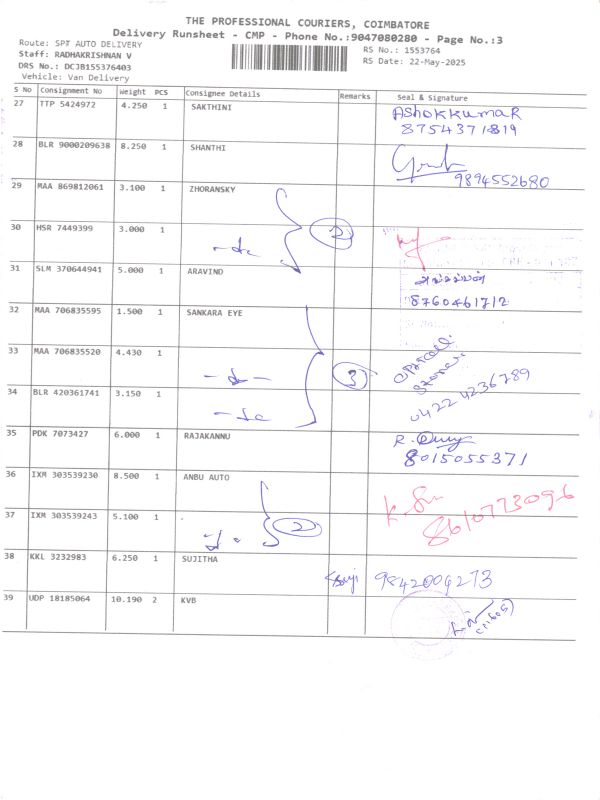 THE PROFESSIONAL COURIERS, COIMBATORE
Delivery Runsheet - CMP - Phone No.:9047080280 - Page No.:3
Route: SPT AUTO DELIVERY
Staff: RADHAKRISHNAN V
DRS No.: DCJB155376403
Vehicle: Van Delivery
RS No.: 1553764
RS Date: 22-May-2025
S No Consignment No Weight PCS Consignee Details Remarks Seal & Signature
27 TTP 5424972 4.250 1 SAKTHINI ASHOKKUMAR
8754371819
28 BLR 9000209638 8.250 1 SHANTHI
9894552680
29 MAA 869812061 3.100 1 ZHORANSKY
30 HSR 7449399 3.000 1 2
31 SLM 370644941 5.000 1 ARAVIND
8760461712
32 MAA 706835595 1.500 1 SANKARA EYE
33 MAA 706835520 4.430 1 3
0422 4236789
34 BLR 420361741 3.150 1
35 PDK 7073427 6.000 1 RAJAKANNU R.
8015055371
36 IXM 303539230 8.500 1 ANBU AUTO
8610773096
37 IXM 303539243 5.100 1 2
38 KKL 3232983 6.250 1 SUJITHA 9842004273
39 UDP 18185064 10.190 2 KVB